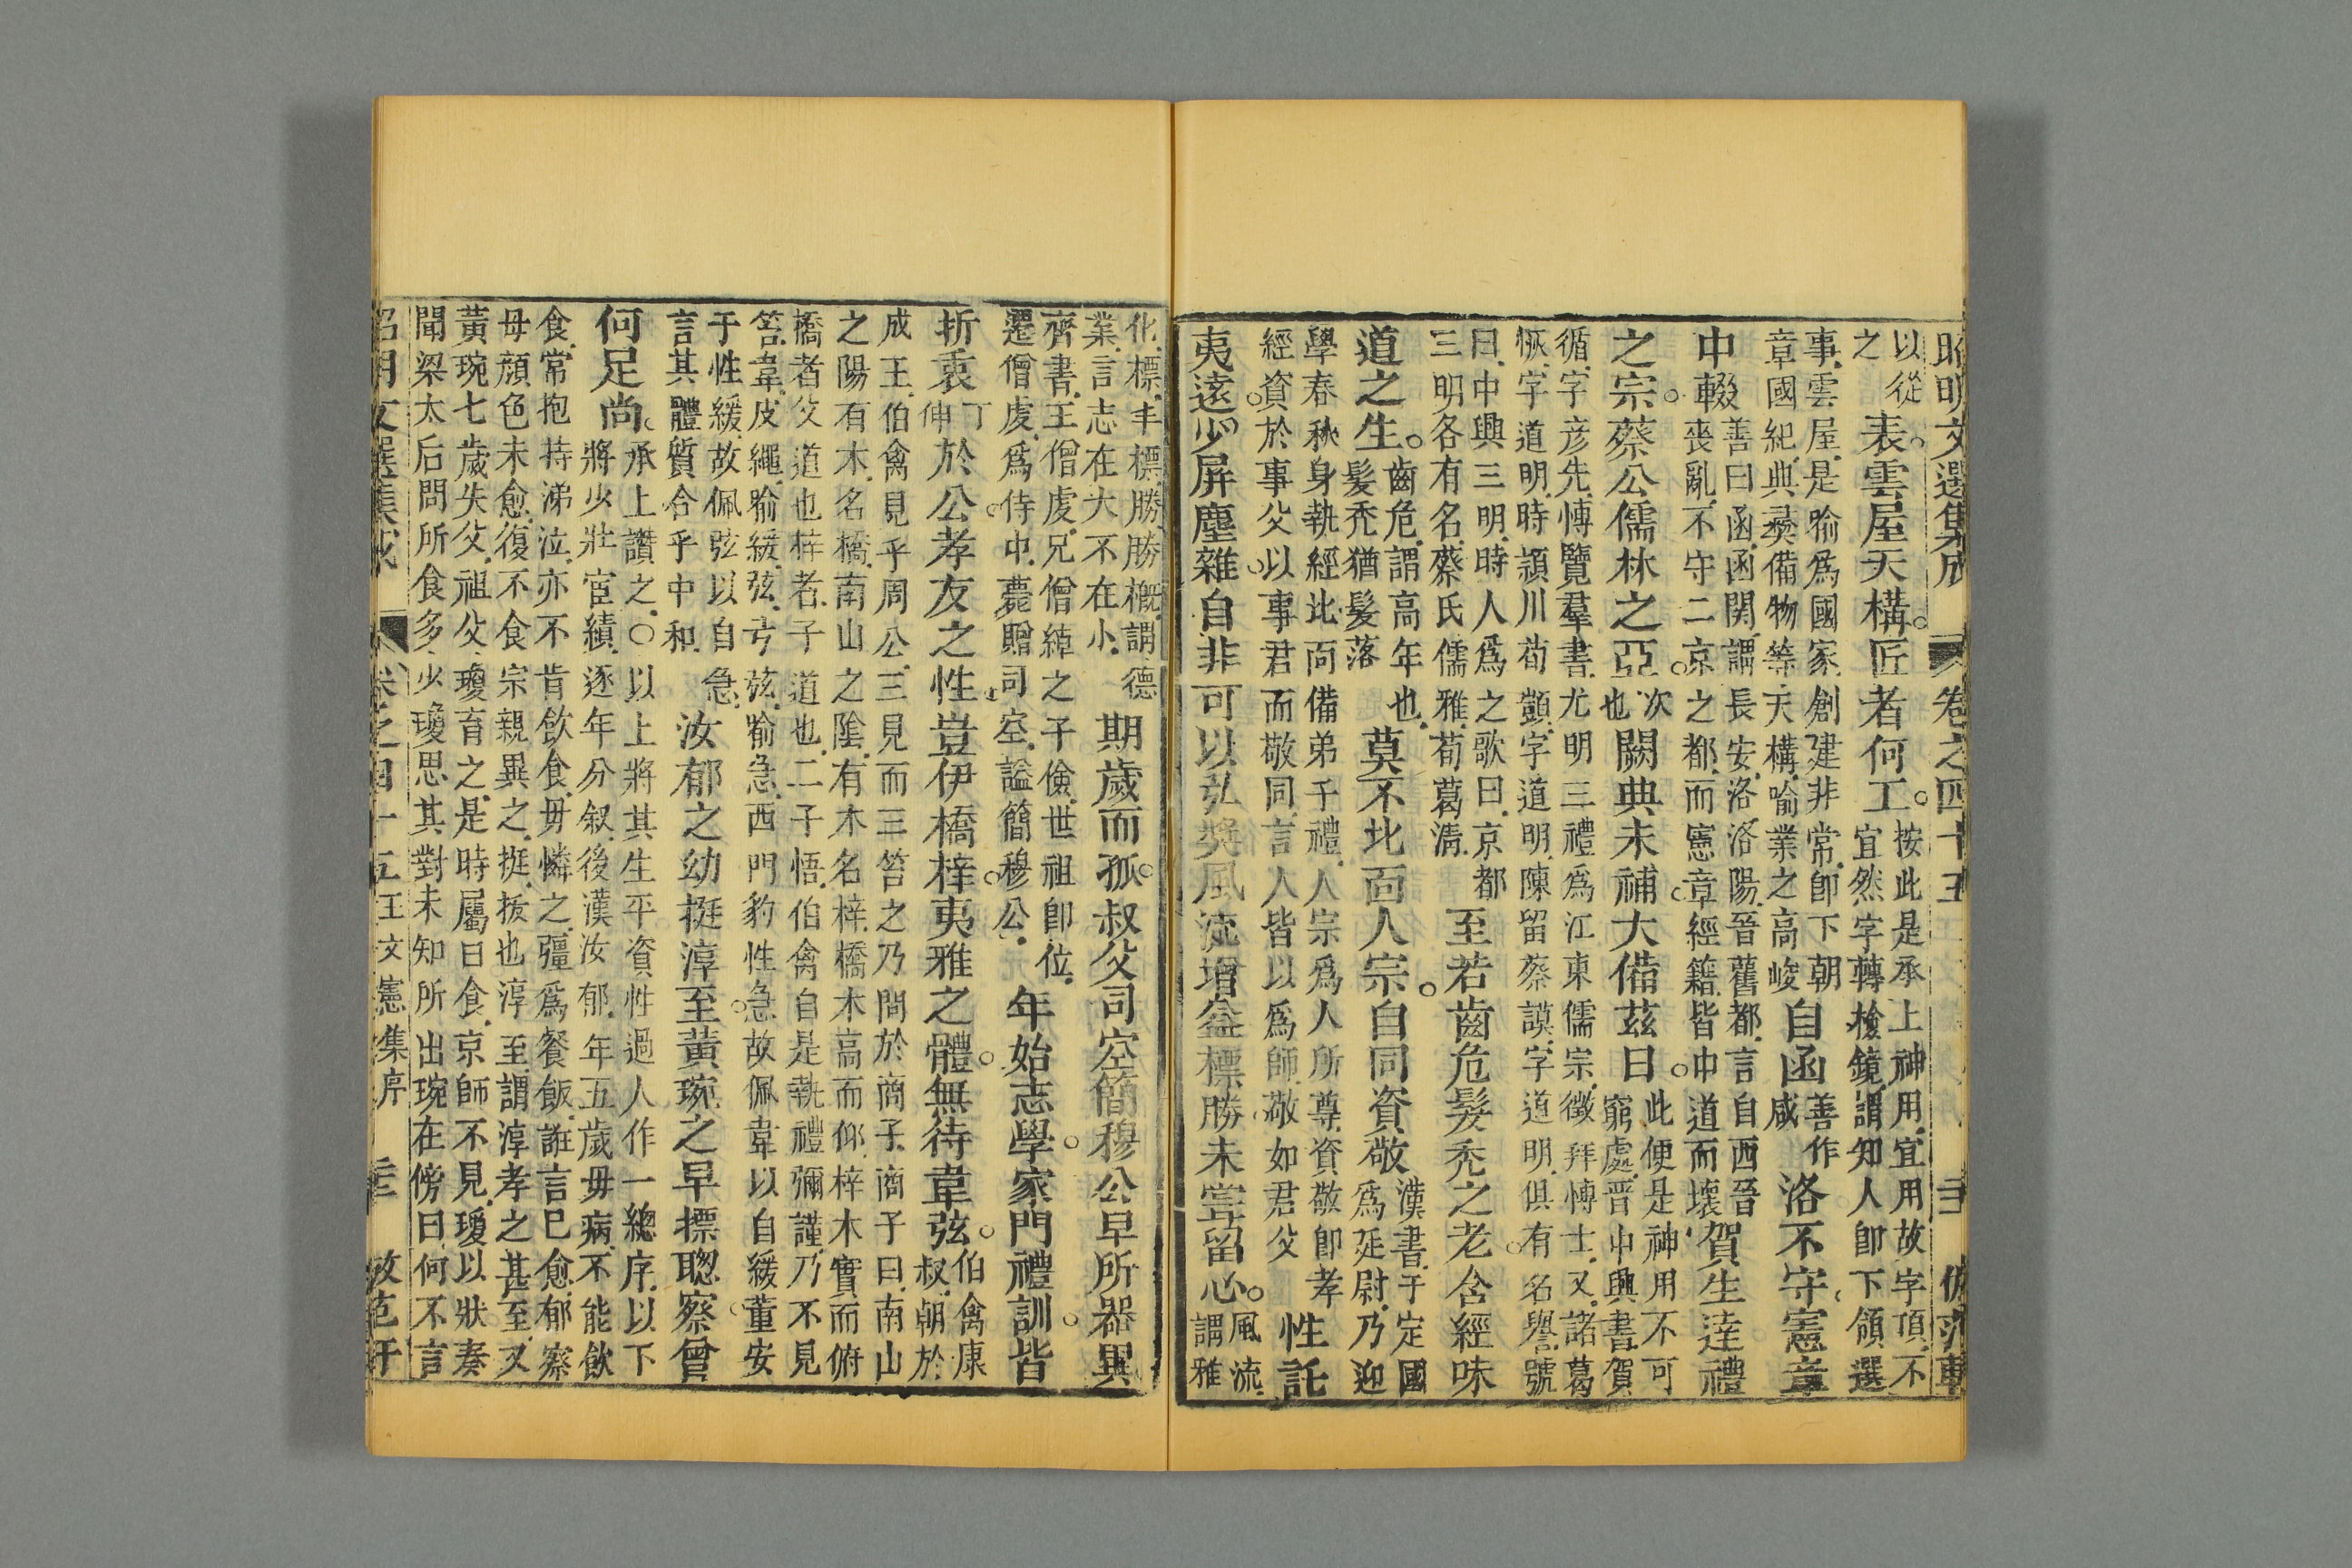 昭明文選集成 卷之四十五
以從之表雲屋天構匠者何工按此是承上神用宜用故字頂不宜然字轉檢鏡謂知人卽下領選
事雲屋是喻爲國家創建非常卽下朝章國紀典彞備物等天構喻業之高峻自函善作咸洛不守憲章
中輟善曰函函關謂長安洛洛陽晉舊都言自西晉喪亂不守二京之都而憲章經籍皆中道而壞賀生達禮
之宗蔡公儒林之亞次也闕典未補大備茲日此便是神用不可窮處晋中興書賀
循字彦先博覽羣書尤明三禮爲江東儒宗徵拜博士又諸葛恢字道明時頴川荀顗字道明陳留蔡謨字道明俱有名譽號
曰中興三明時人爲之歌曰京都三明各有名蔡氏儒雅荀葛淸至若齒危髮禿之老含經味
道之生齒危謂高年也髮禿猶髮落莫不北面人宗自同資敬漢書于定國爲延尉乃迎
學春秋身執經北面備弟千禮人宗爲人所尊資敬卽孝經資於事父以事君而敬同言人皆以爲師敬如君父性託
夷遠少屏塵雜自非可以弘奬風流增益標勝未嘗留心風流謂雅
化標丰標勝勝槪謂德業言志在大不在小期歲而孤叔父司空簡穆公早所器異
齊書王僧虔兄僧綽之子儉世祖卽位遷僧虔爲侍中薨贈司空謚簡穆公年始志學家門禮訓皆
折衷丁伸於公孝友之性豈伊橋梓夷雅之體無待韋弦伯禽康叔朝於
成王伯禽見乎周公三見而三笞之乃問於商子商子曰南山之陽有木名橋南山之陰有木名梓橋木高而仰梓木實而俯
橋者父道也梓者子道也二子悟伯禽自是執禮彌謹乃不見笞韋皮繩喻緩弦弓弦喻急西門豹性急故佩韋以自緩董安
于性緩故佩弦以自急言其體質合乎中和汝郁之幼挺淳至黃琬之早摽聰察曾
何足尚承上讚之〇以上將其生平資性過人作一總序以下將少壯宦績逐年分叙後漢汝郁年五歲毋病不能飲
食常抱持涕泣亦不肯飲食毋憐之彊爲餐飯誑言已愈郁察毋顔色未愈復不食宗親異之挺拔也淳至謂淳孝之甚至又
黃琬七歲失父祖父瓊育之是時屬日食京師不見瓊以狀奏聞梁太后問所食多少瓊思其對未知所出琬在傍曰何不言
卷之四十五王文憲集序